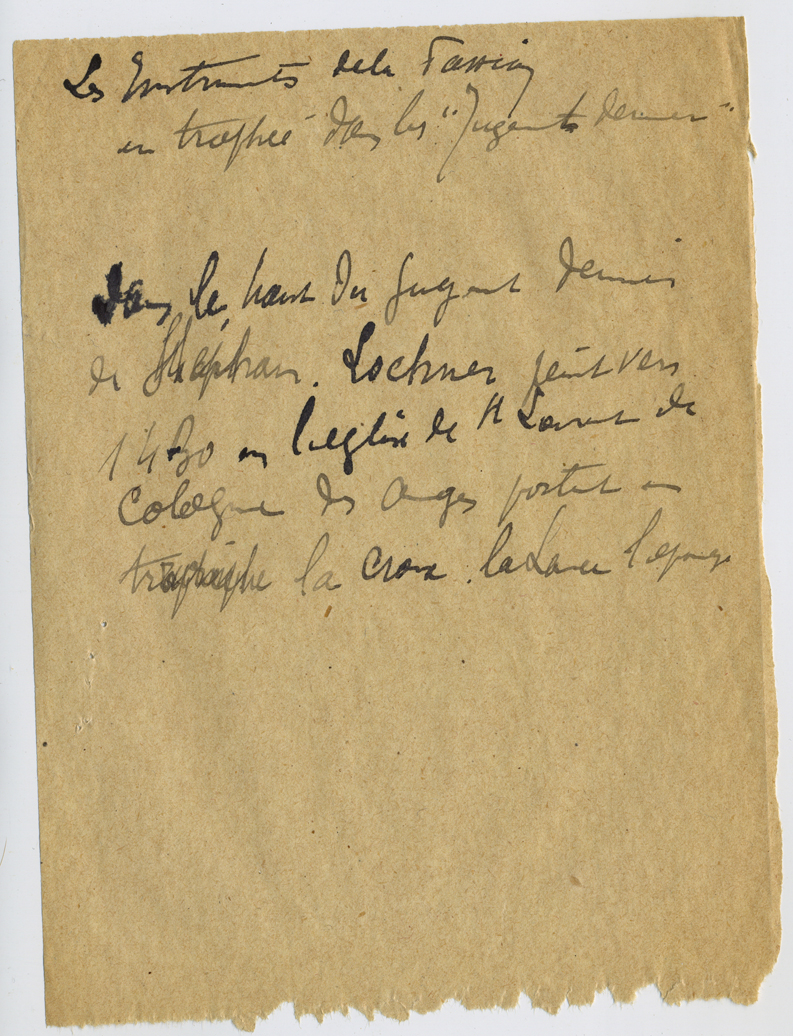 Les Instruments de la Passion
en trophée dans les "Jugements derniers"
dans le haut du Jugement dernier
de Stéphan. Lochner peint vers
1430 en l'église de St Laurent de
Cologne des anges portent en
la croix. la Lance l'éponge